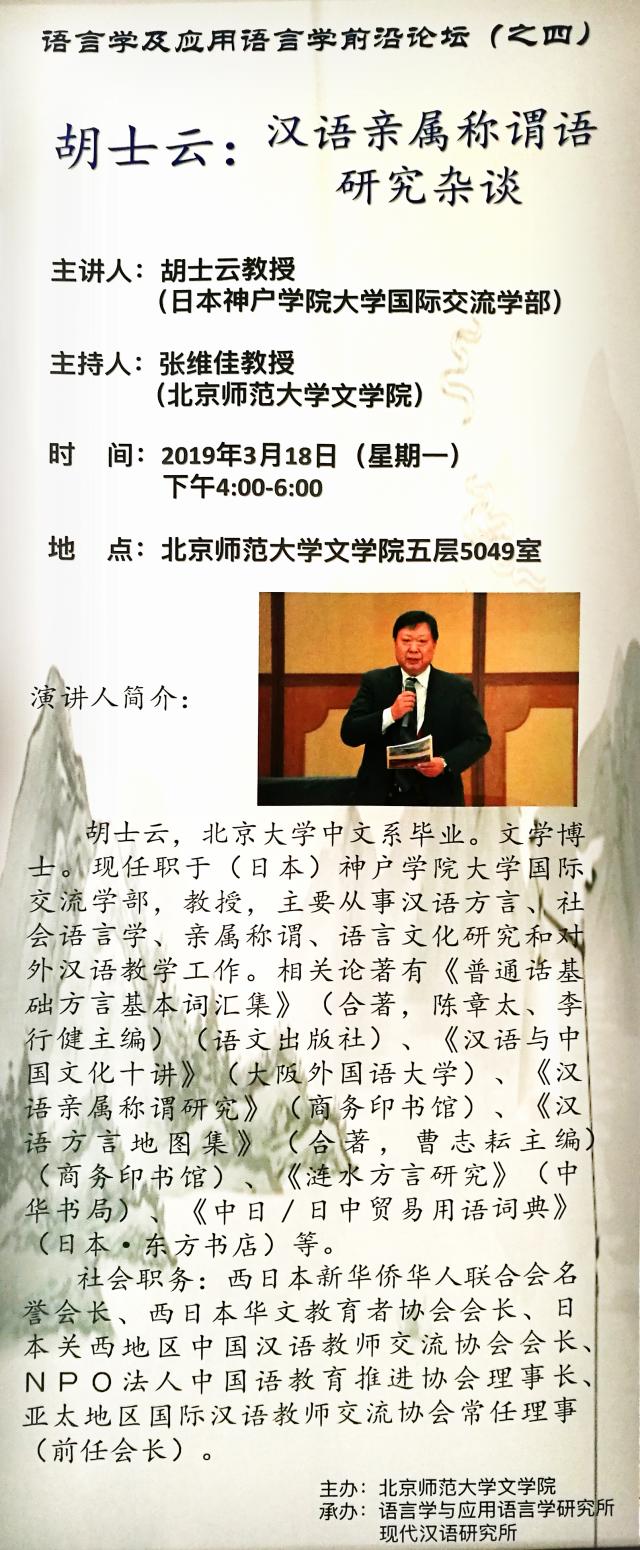 语言学及应用语言学前沿论坛（之四）
胡士云：汉语亲属称谓语
研究杂谈
主讲人：胡士云教授
（日本神户学院大学国际交流学部）
主持人：张维佳教授
（北京师范大学文学院）
时 间：2019年3月18日（星期一）
下午4:00-6:00
地 点：北京师范大学文学院五层5049室
演讲人简介：
胡士云，北京大学中文系毕业。文学博
士。现任职于（日本）神户学院大学国际
交流学部，教授，主要从事汉语方言、社
会语言学、亲属称谓、语言文化研究和对
外汉语教学工作。相关论著有《普通话基
础方言基本词汇集》（合著，陈章太、李
行健主编）（语文出版社）、《汉语与中
国文化十讲》（大阪外国语大学）、《汉
语亲属称谓研究》（商务印书馆）、《汉
语方言地图集》（合著，曹志耘主编）
（商务印书馆）、《涟水方言研究》（中
华书局）、《中日/日中贸易用语词典》
（日本·东方书店）等。
社会职务：西日本新华侨华人联合会名
誉会长、西日本华文教育者协会会长、日
本关西地区中国汉语教师交流协会会长、
NPO法人中国语教育推进协会理事长、
亚太地区国际汉语教师交流协会常任理事
（前任会长）。
主办：北京师范大学文学院
承办：语言学与应用语言学研究所
现代汉语研究所